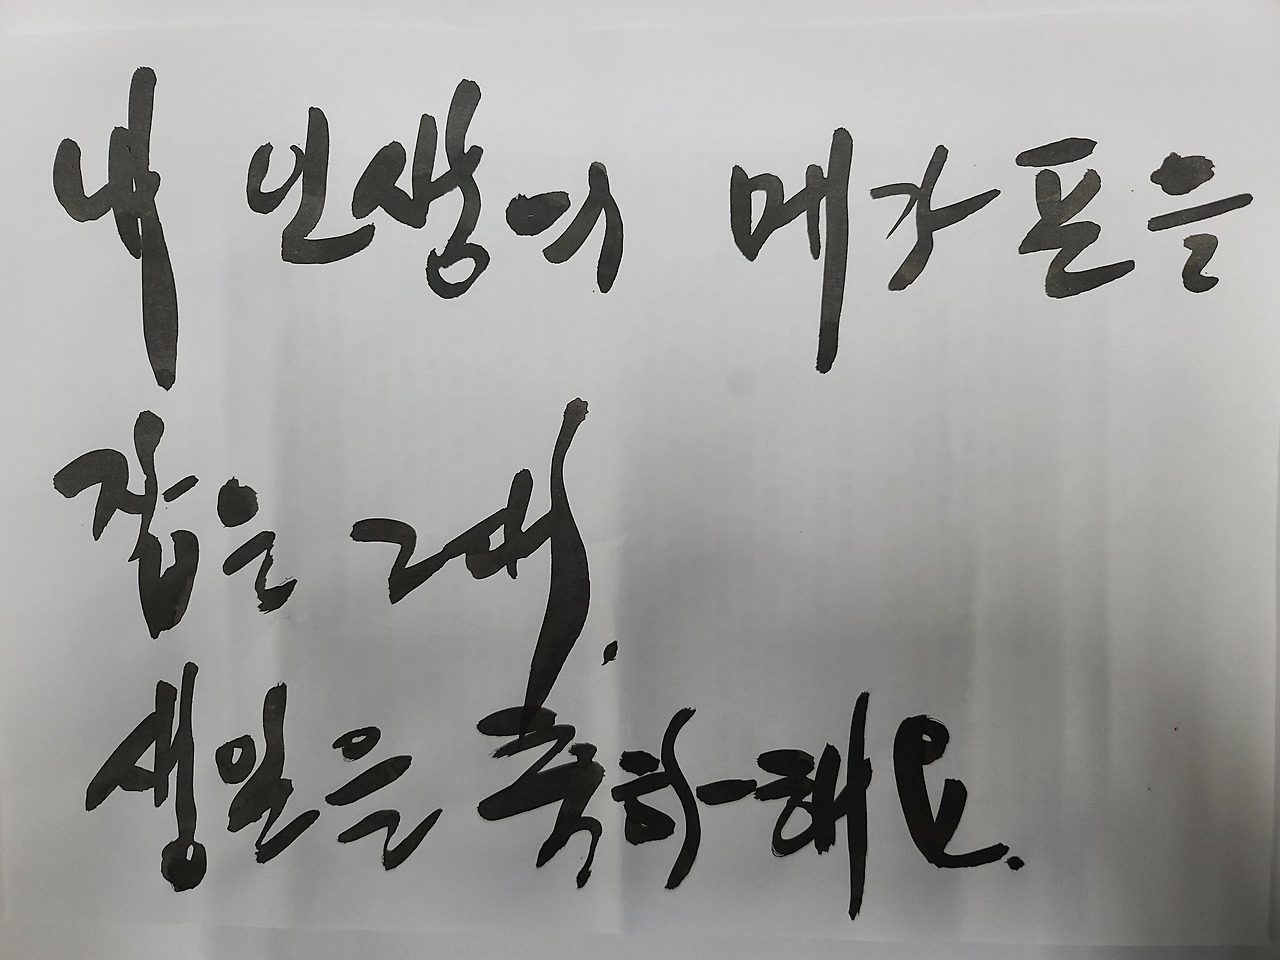 내 인생의 메가폰을
잡은 그대.
생일을 축하해요.